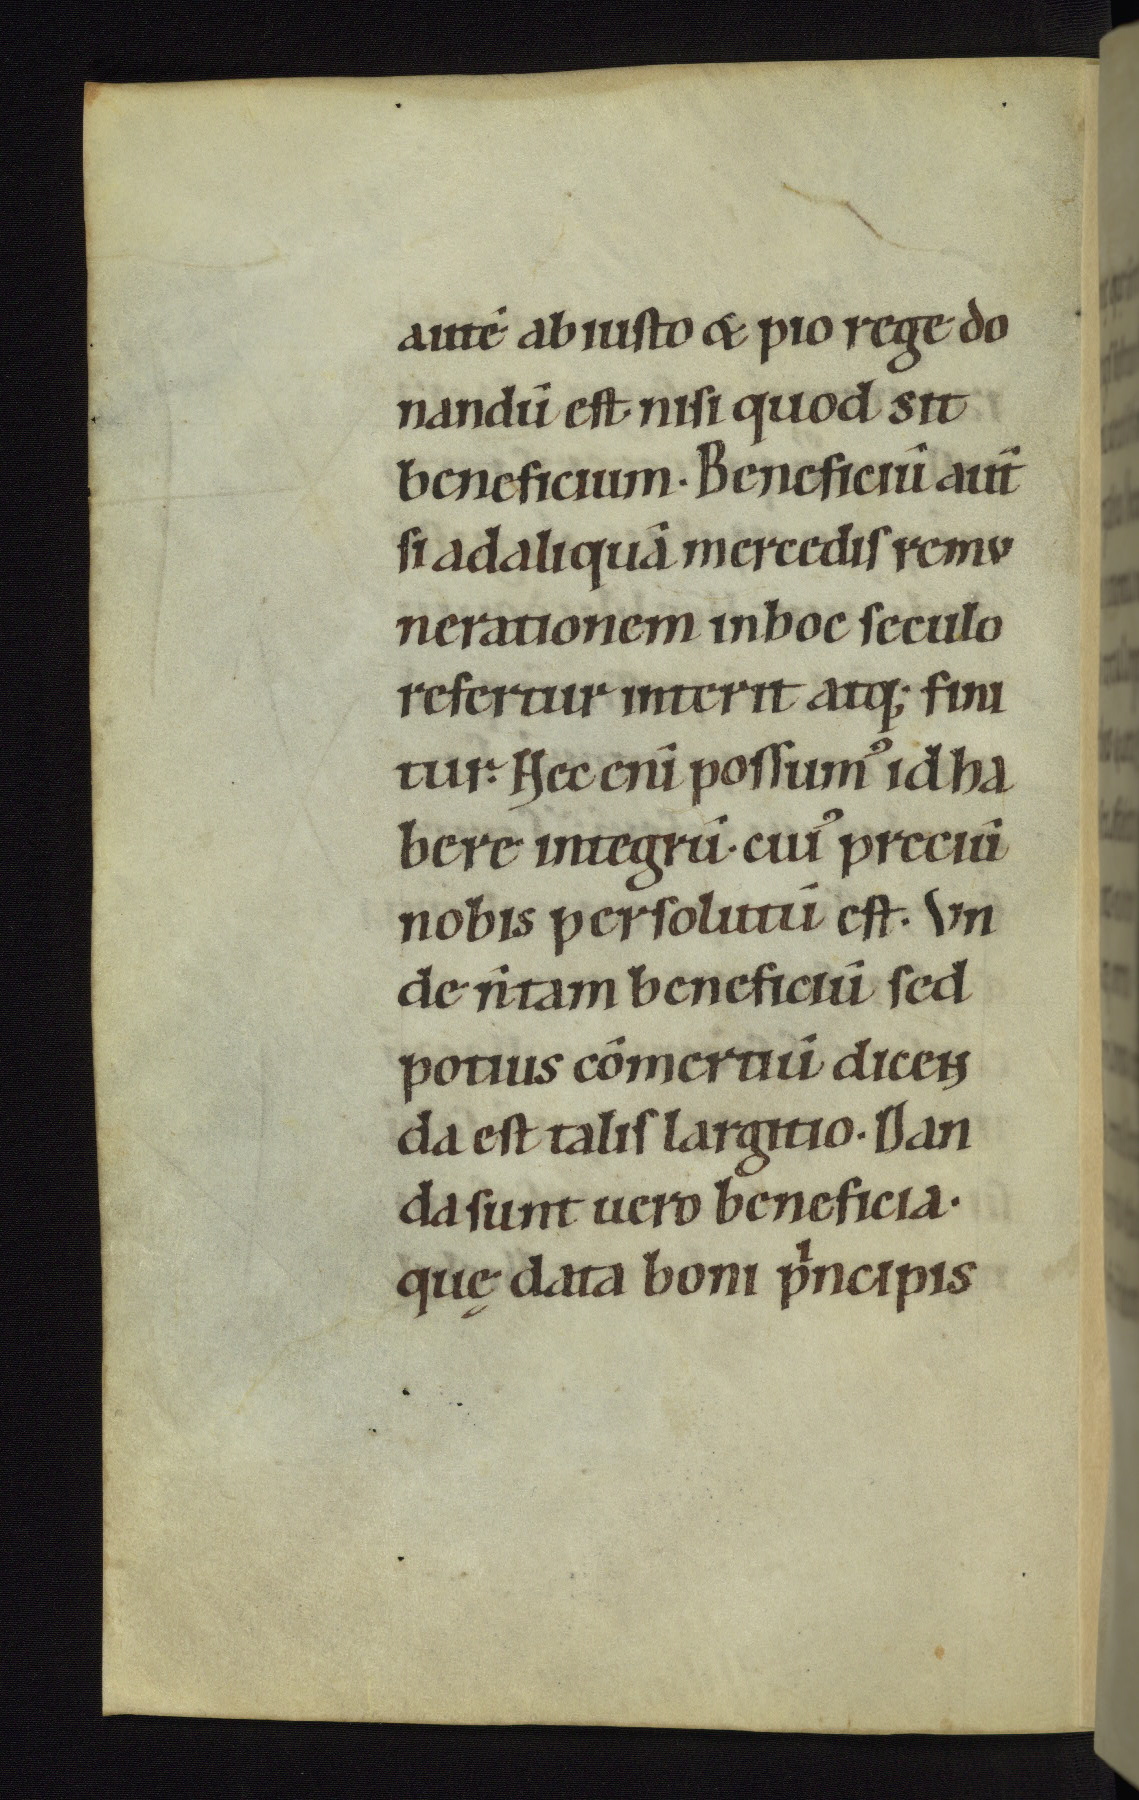 autē ab iusto & pio rege do
nandū est nisi quod sit
beneficium. Beneficiū aut̄
si ad aliquā mercedis remu
nerationem in hoc seculo
refertur interit atq; fini
tur. Nec eni possumꝰ id ha
bere integrū. cuiꝰ preciū
nobis persolutū est. Vn
de n̄ tam beneficiū sed
potius cōmertiū dicen
da est talis largitio. Dan
da sunt uero beneficia.
quę data boni pͥncipis